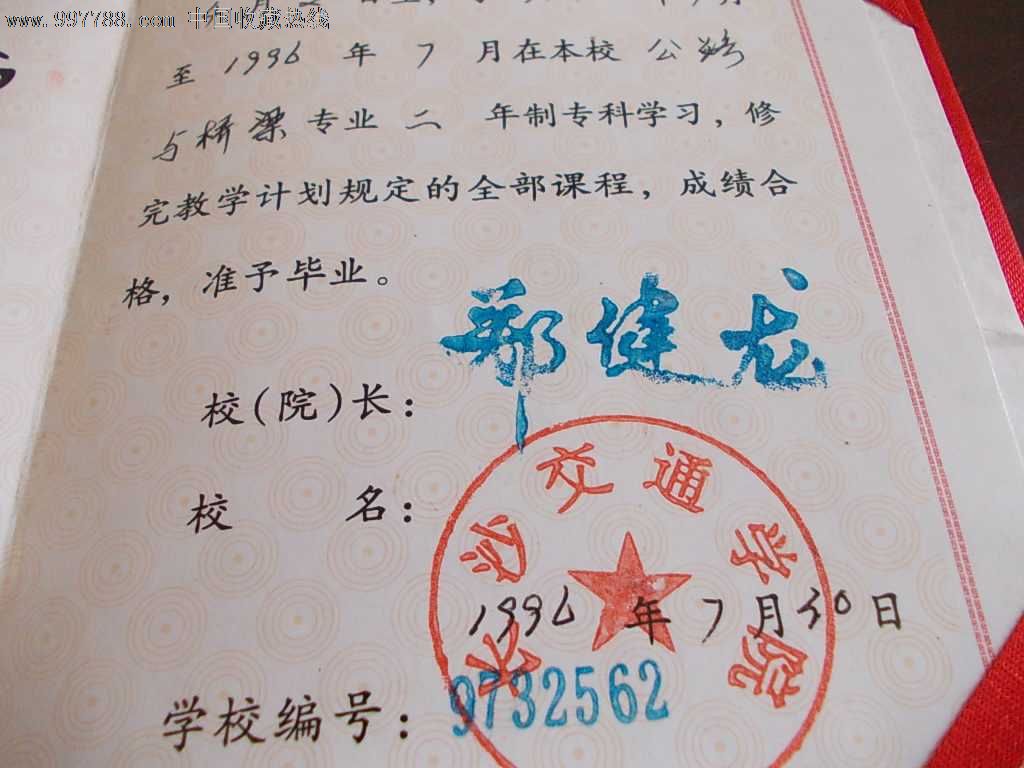 www.997788.com 中国收藏热线
至 1996 年 7 月在本校 公路
与桥梁 专业 二 年制专科学习，修
完教学计划规定的全部课程，成绩合
格，准予毕业。
校(院)长：郑健龙
校 名：
长沙交通学院
1996 年 7 月 30 日
学校编号：9732562